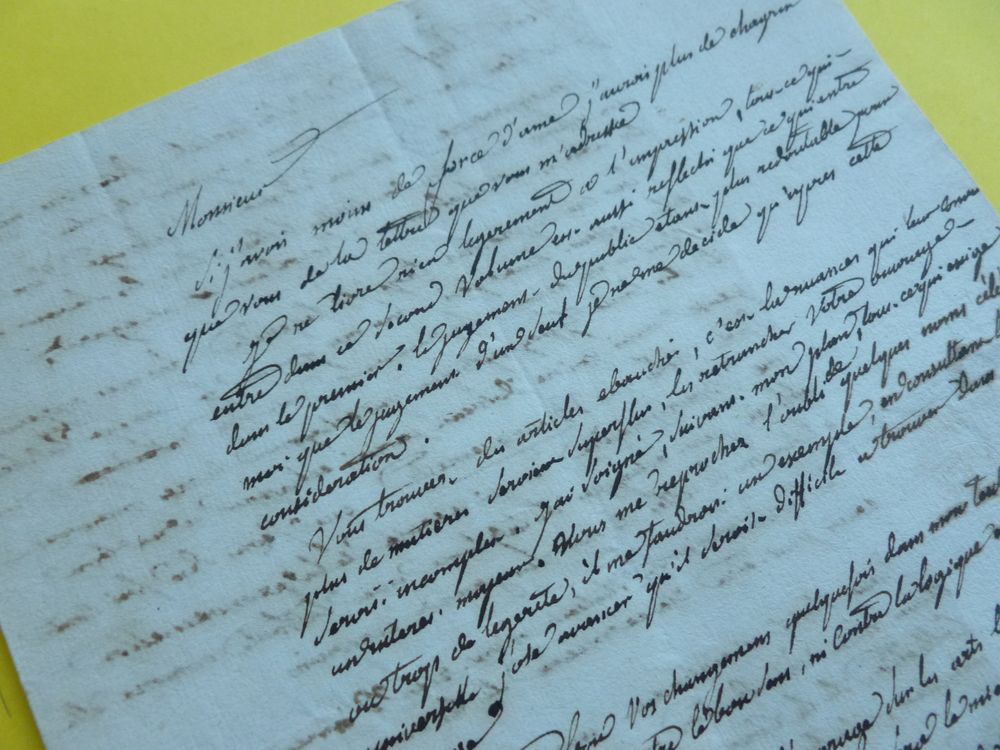 Monsieur
Si j'avois moins de force d'ame j'aurois plus de chagrin
que vous de la lettre que vous m'adressée
je ne livre rien legerement à l'impression, tout ce qui
entre dans ce second volume est aussi reflechi que ce qui entre
dans le premier. le jugement du public etant plus redoutable pour
moi que le jugement d'un seul je ne me decide qu'apres cette
consideration.
Vous trouvez des articles ebauchés, c'est les nuances qui
plus de matières seroient superflus, les retrancher votre ouvrage
seroit incomplet. j'ai soigné, suivant mon plan, tout ce qui exige
un interet majeur. Vous me reprochez l'oubli de quelques noms
ou trop de legereté, il me faudroit un exemple, en consultant
universelle j'ose avancer qu'il seroit difficile a trouver dans
Vos changemens quelquefois dans mon
le bon sens, ni contre la logique
sur les arts